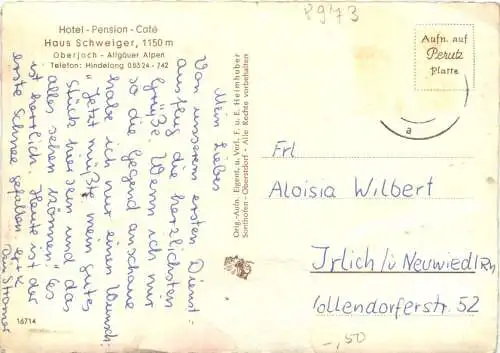 P9473
Hotel - Pension - Café
Haus Schweiger, 1150 m
Oberjoch - Allgäuer Alpen
Telefon: Hindelang 08324 - 742
Aufn. auf
Perutz
Platte
Mein Liebes
Von unserem ersten Dienst-
ausflug die herzlichsten
Grüße. Wenn ich mir
so die Gegend anschaue
habe ich nur einen Wunsch:
"Jetzt müßte mein gutes
Stück hier sein und das
alles sehen können". Es
ist herrlich. Heute ist der
erste Schnee gefallen.
Orig.-Aufn. Eigent. u. Verl. F. u. E. Heimhuber
Sonthofen - Oberstdorf - Alle Rechte vorbehalten
a
Frl
Aloisia Wilbert
Irlich / ü Neuwied/Rh
Wollendorferstr. 52
16714
-,50